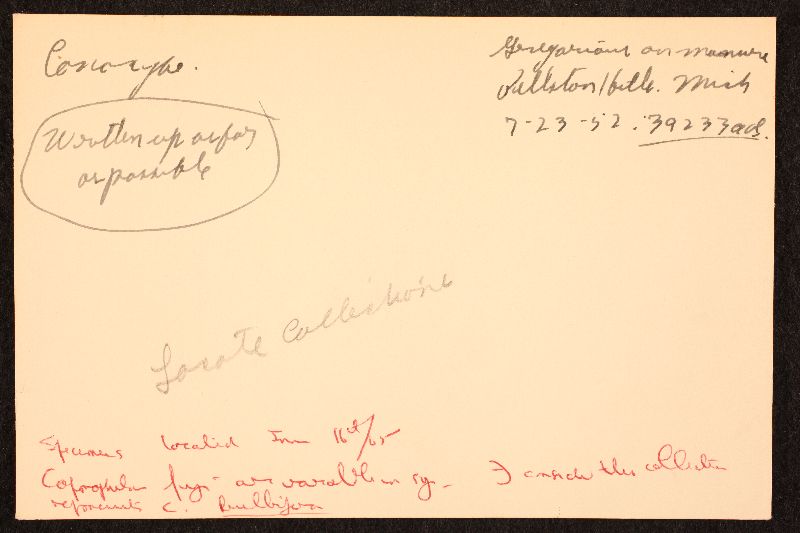 Conocybe.
Gregarious on manure
Pellston Hills. Mich
7-23-52. 39233
Written up as far
as possible
Locate Collections
Specimens located June 16th/65
fungi are variable in I consider this collection
represents C.